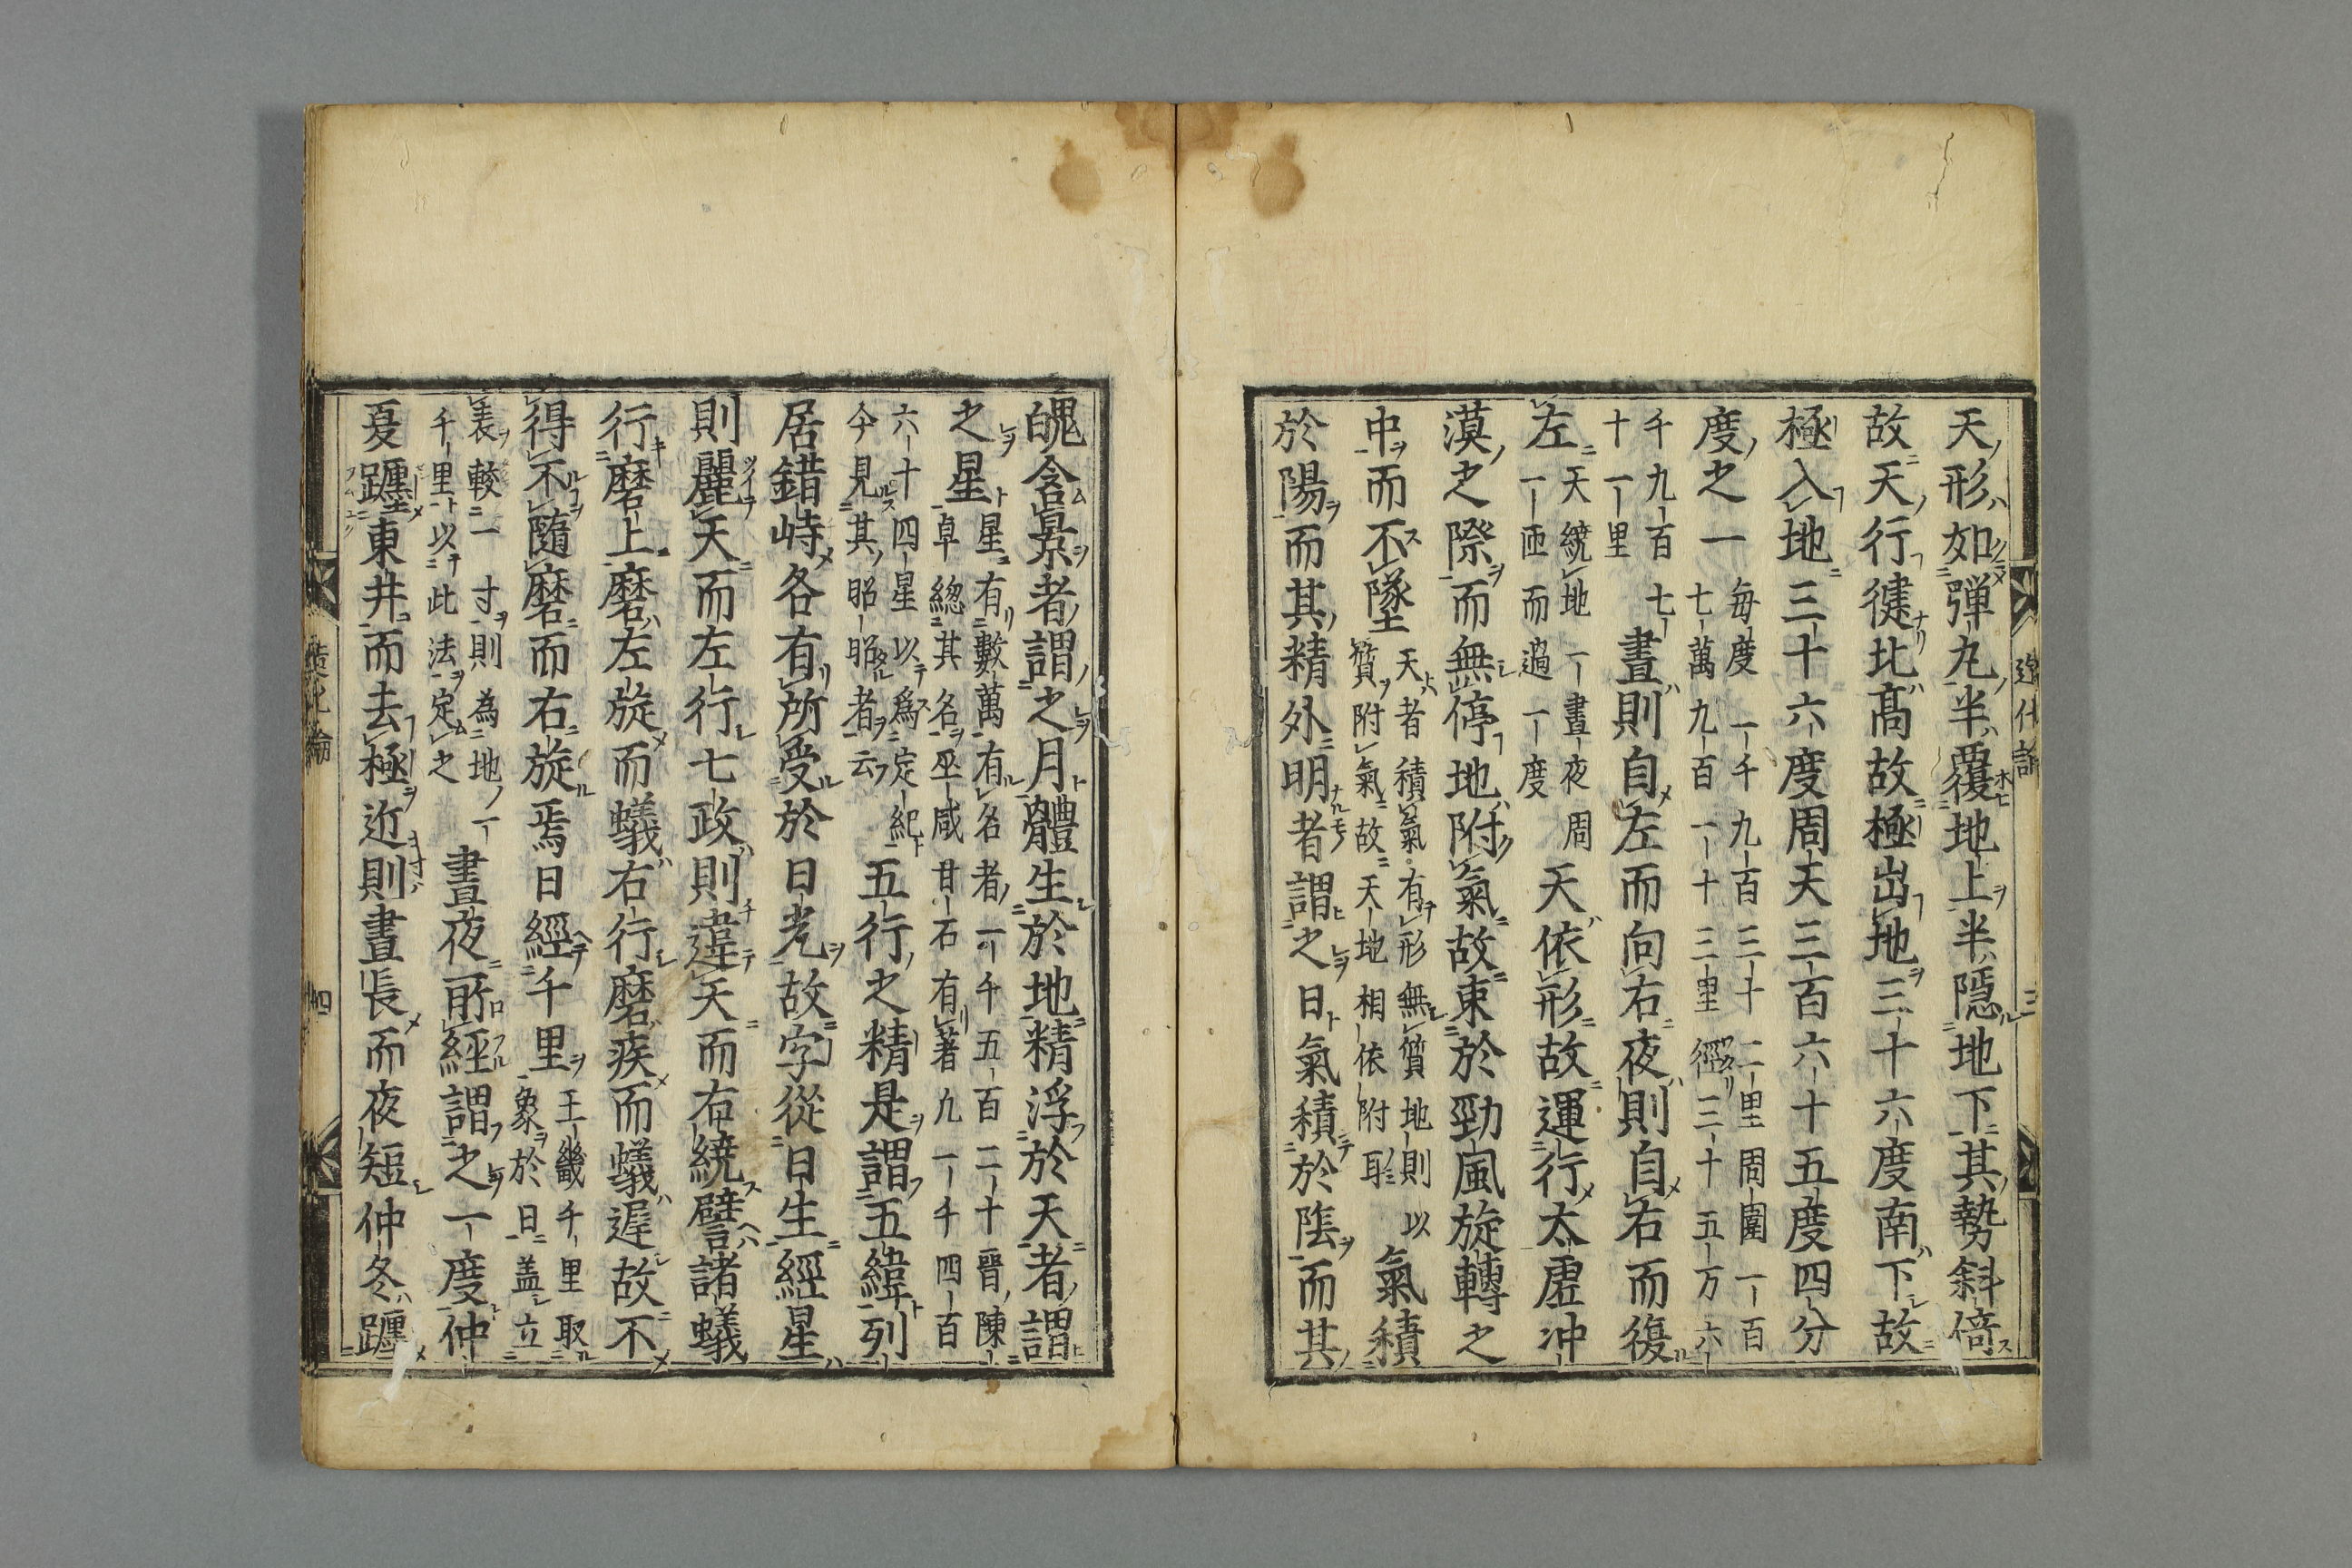 天形如彈丸半覆地上半隱地下其勢斜倚
故天行健北高故極出地三十六度南下故
極入地三十六度周天三百六十五度四分
度之一
每度一千九百三十二里周圍一百
七萬九百一十三里徑三十五万六
千九百七
十一里
晝則自左而向右夜則自右而復
左
天繞地一晝夜周
一匝而過一度
天依形故運行太虛冲
漠之際而無停地附氣故束於勁風旋轉之
中而不墜
天者積氣有形無質地則以
質附氣故天地相依附耳
氣積
於陽而其精外明者謂之日氣積於陰而其
魄含景者謂之月體生於地精浮於天者謂
之星
星有數萬有名者一千五百二十晉陳
卓總其名巫咸甘石有著凡一千四百
六十四星以爲定紀
今見其昭昭者云
五行之精是謂五緯列
居錯峙各有所受於日光故字從日生經星
則麗天而左行七政則違天而右繞譬諸蟻
行磨上磨左旋而蟻右行磨疾而蟻遲故不
得不隨磨而右旋焉日經千里
王畿千里取
象於日盖立
表較一寸則為地一
千里以此法定之
晝夜所經謂之一度仲
夏躔東井而去極近則晝長而夜短仲冬躔
造化論
四
造化論
三